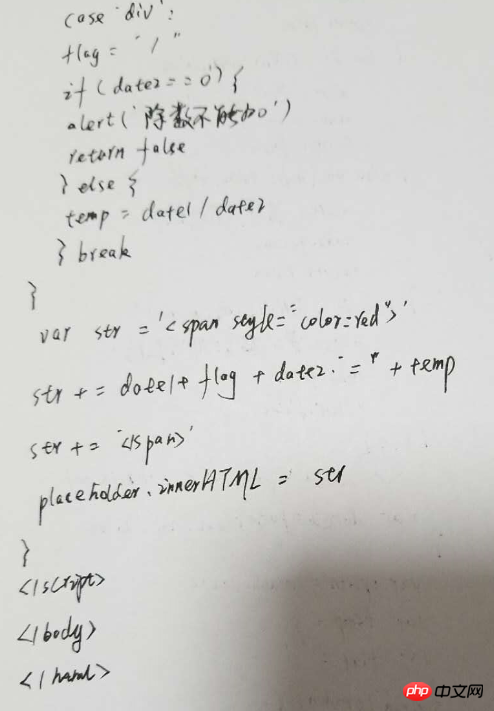 case 'div':
flag = "/"
if (date2 == 0) {
alert('除数不能为0')
return false
} else {
temp = date1 / date2
} break
}
var str = '<span style="color=red">'
str += date1 + flag + date2 "=" + temp
str += '</span>'
placeholder.innerHTML = str
}
</script>
</body>
</html>
php 中文网